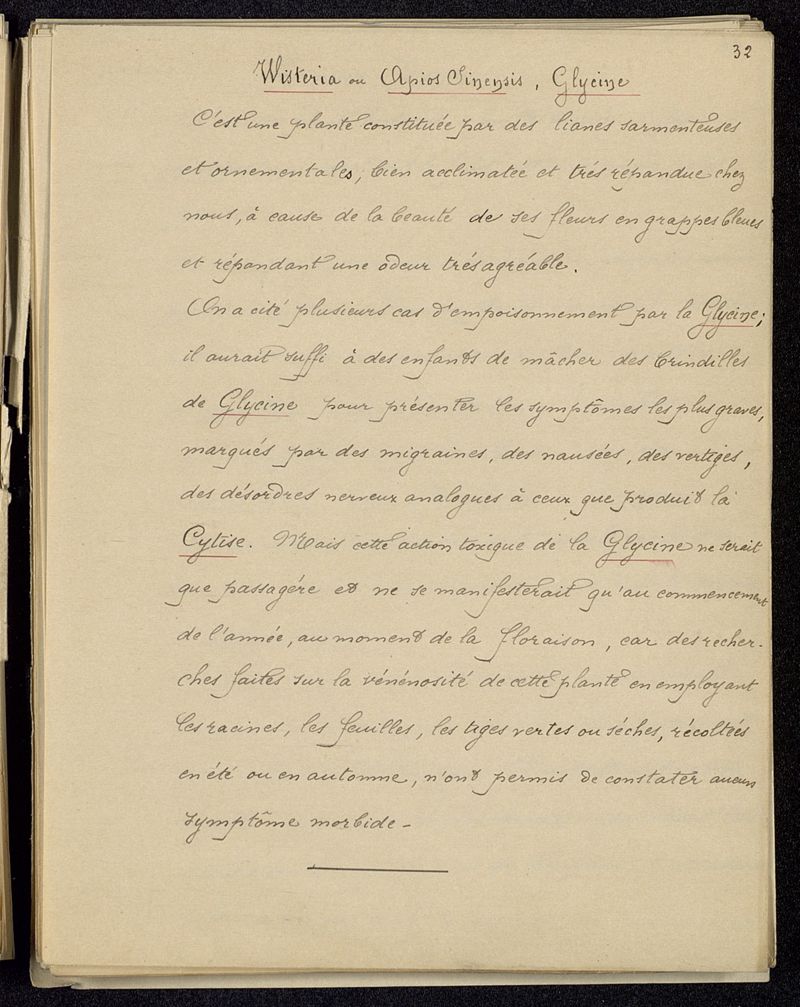 32
Wisteria ou Apios Sinensis, Glycine
C'est une plante constituée par des lianes sarmenteuses
et ornementales, bien acclimatée et trés répandue chez
nous, à cause de la beauté de ses fleurs en grappes bleues
et répandant une odeur trés agréable.
On a cité plusieurs cas d'empoisonnement par la Glycine;
il aurait suffi à des enfants de mâcher des brindilles
de Glycine pour présenter les symptômes les plus graves,
marqués par des migraines, des nausées, des vertiges,
des désordres nerveux analogues à ceux que produit la
Cytise. Mais cette action toxique de la Glycine ne serait
que passagére et ne se manifesterait qu'au commencement
de l'année, au moment de la floraison, car des recher-
ches faites sur la vénénosité de cette plante en employant
les racines, les feuilles, les tiges vertes ou séches, récoltées
en été ou en automne, n'ont permis de constater aucun
symptôme morbide -